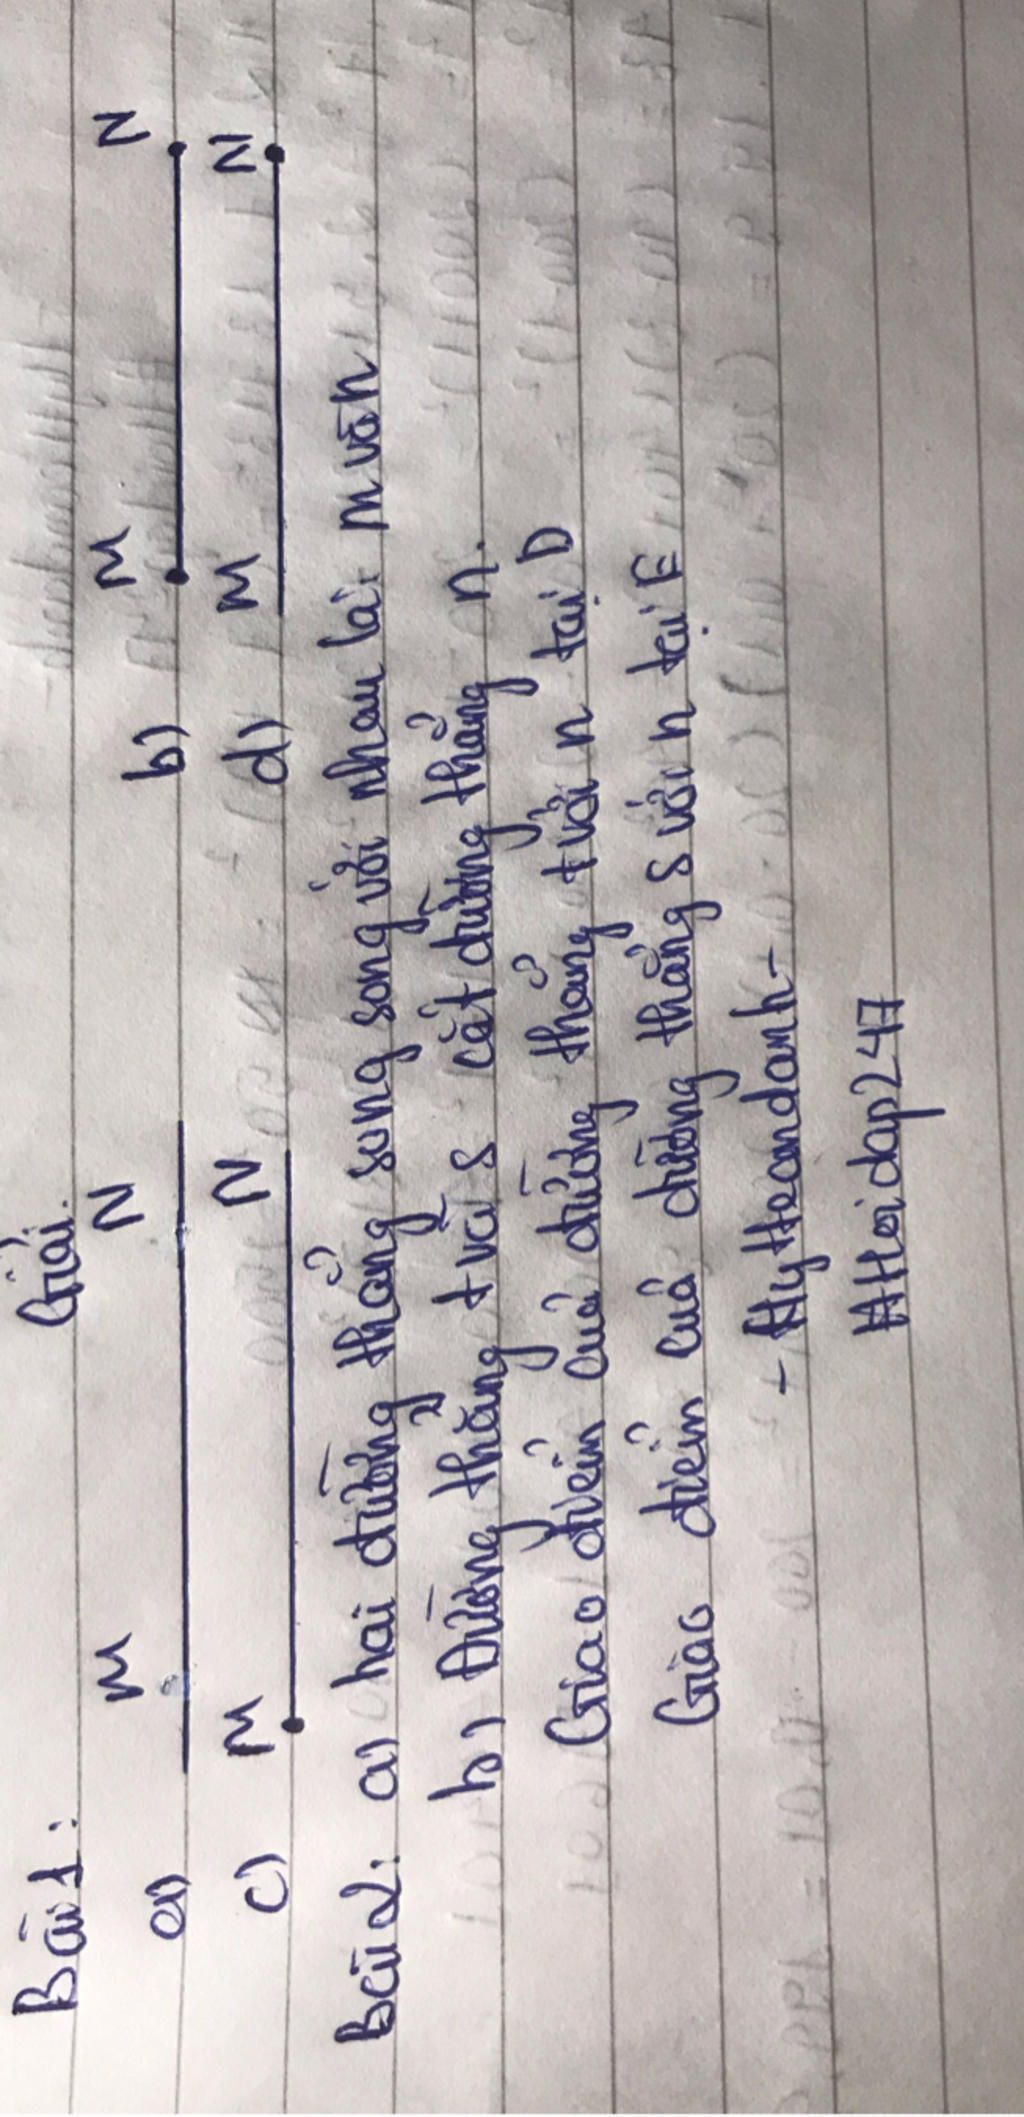 Giải.
Bài 1:
a) M N b) M N
c) M N d) M N
Bài 2: a) hai đường thẳng song song với nhau là: m và n
b) Đường thẳng t và s cắt đường thẳng n.
Giao điểm của đường thẳng t với n tại D
Giao điểm của đường thẳng s với n tại E
- Hyteandanh -
#Hoidap247